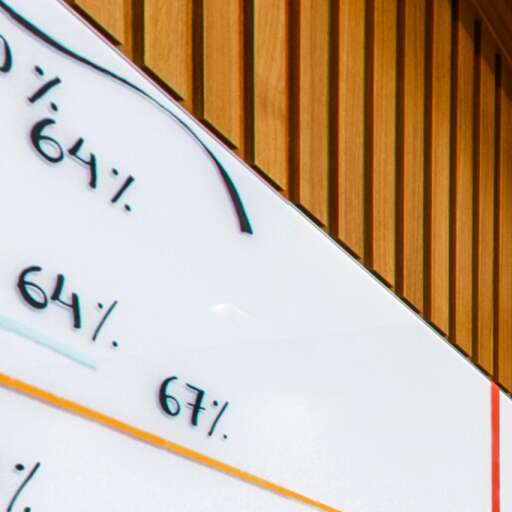 %
64%
64%
67%
%